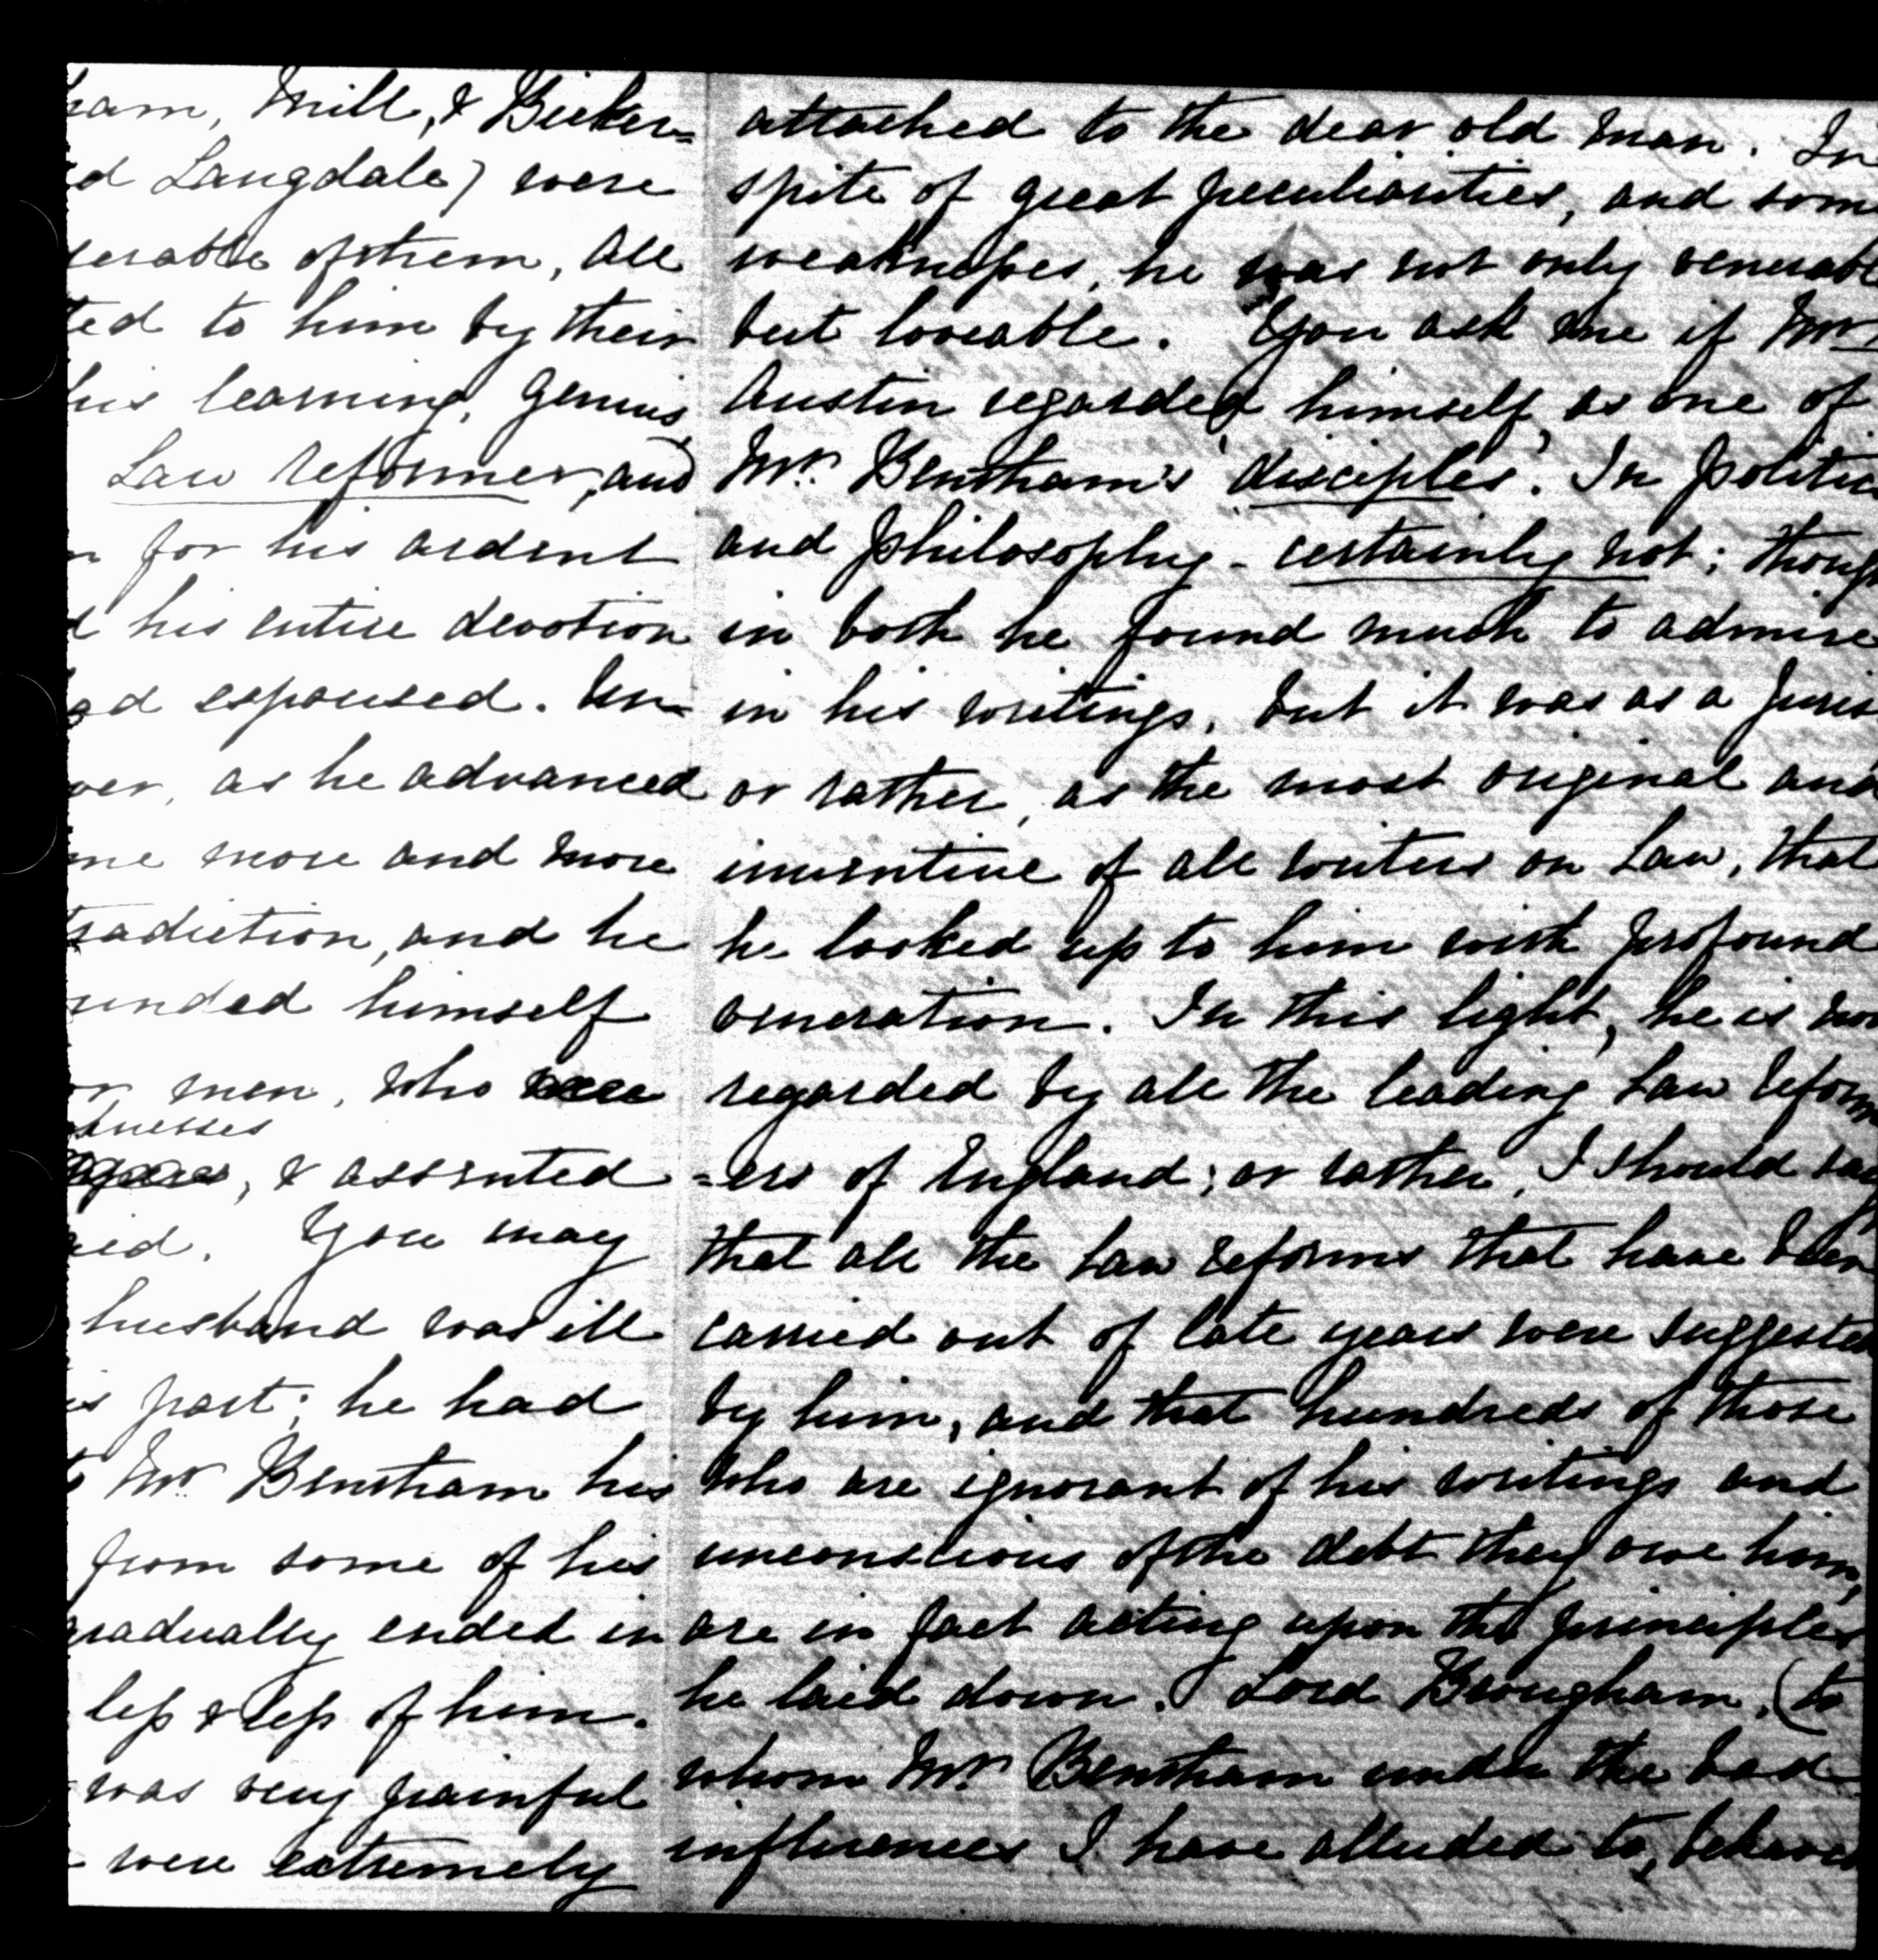 ham, Mill, & Bicker=
d Langdale) were
erable of them, All
ted to him by their
his learning, Genius,
Law reformer, and
n for his ardent
d his entire devotion
ad espoused. Un=
ver, as he advanced
me more and more
tradiction, and he
unded himself
or men, who were
knesses
, & assented
aid. You may
husband was ill
is part; he had
to Mr. Bentham his
from some of his
gradually ended in
less & less of him.
was very painful
were extremely
attached to the dear old man. In
spite of great peculiarities, and some
weaknesses, he was not only venerable
but loveable. You ask me if Mr.
Austin regarded himself, as one of
Mr. Bentham's 'disciples'. In politics
and philosophy - certainly not; though
in both he found much to admire
in his writings, but it was as a Juris
or rather, as the most original and
inventive of all writers on Law, that
he looked up to him with profound
veneration. In this light, he is now
regarded by all the leading Law reform
=ers of England; or rather, I should say
that all the Law reforms that have been
carried out of late years were suggested
by him, and that hundreds of those
who are ignorant of his writings and
unconscious of the debt they owe him,
are in fact acting upon the principles
he laid down. Lord Brougham, (to
whom Mr. Bentham under the bad
influences I have alluded to, behaved